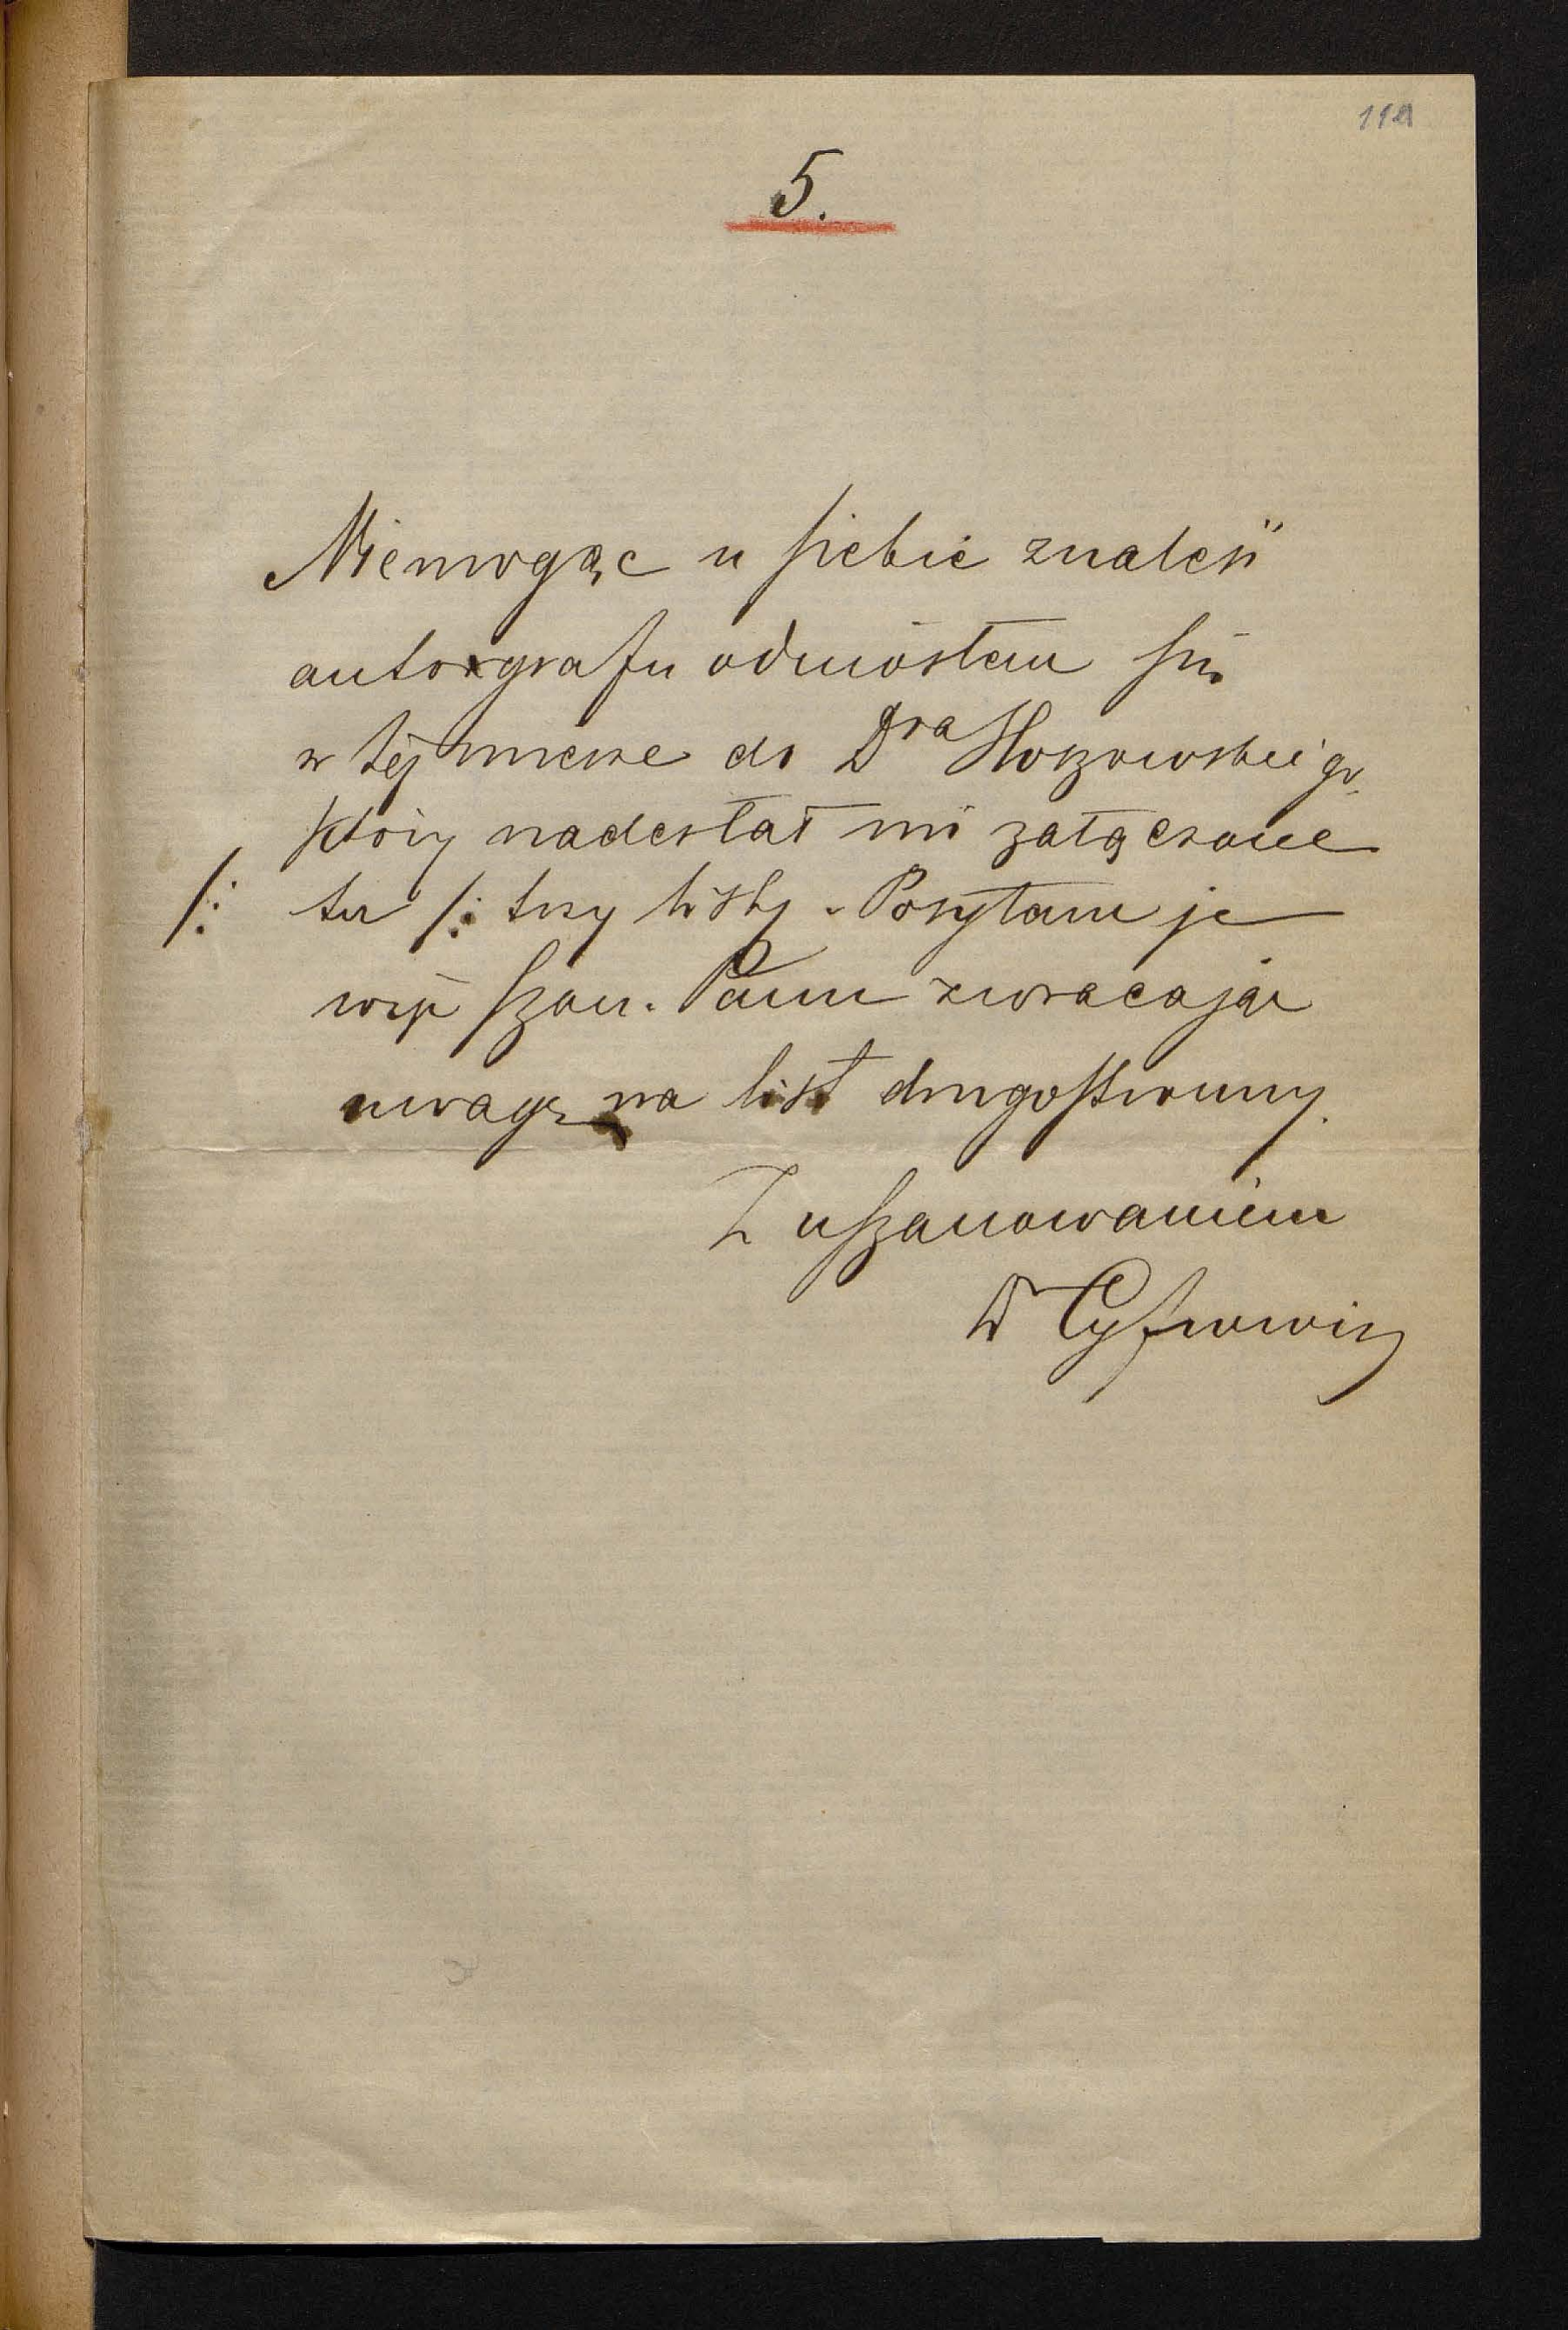 5.
Niemogąc u siebie znaleść
autografu odniosłem się
w tej mierze do Dra
który nadesłał mi załączone
/: tu /: trzy listy. Posyłam je
więc Szan. Panu zwracając
uwagę na list drugostronny.
Z uszanowaniem
Dr Cyfrowicz